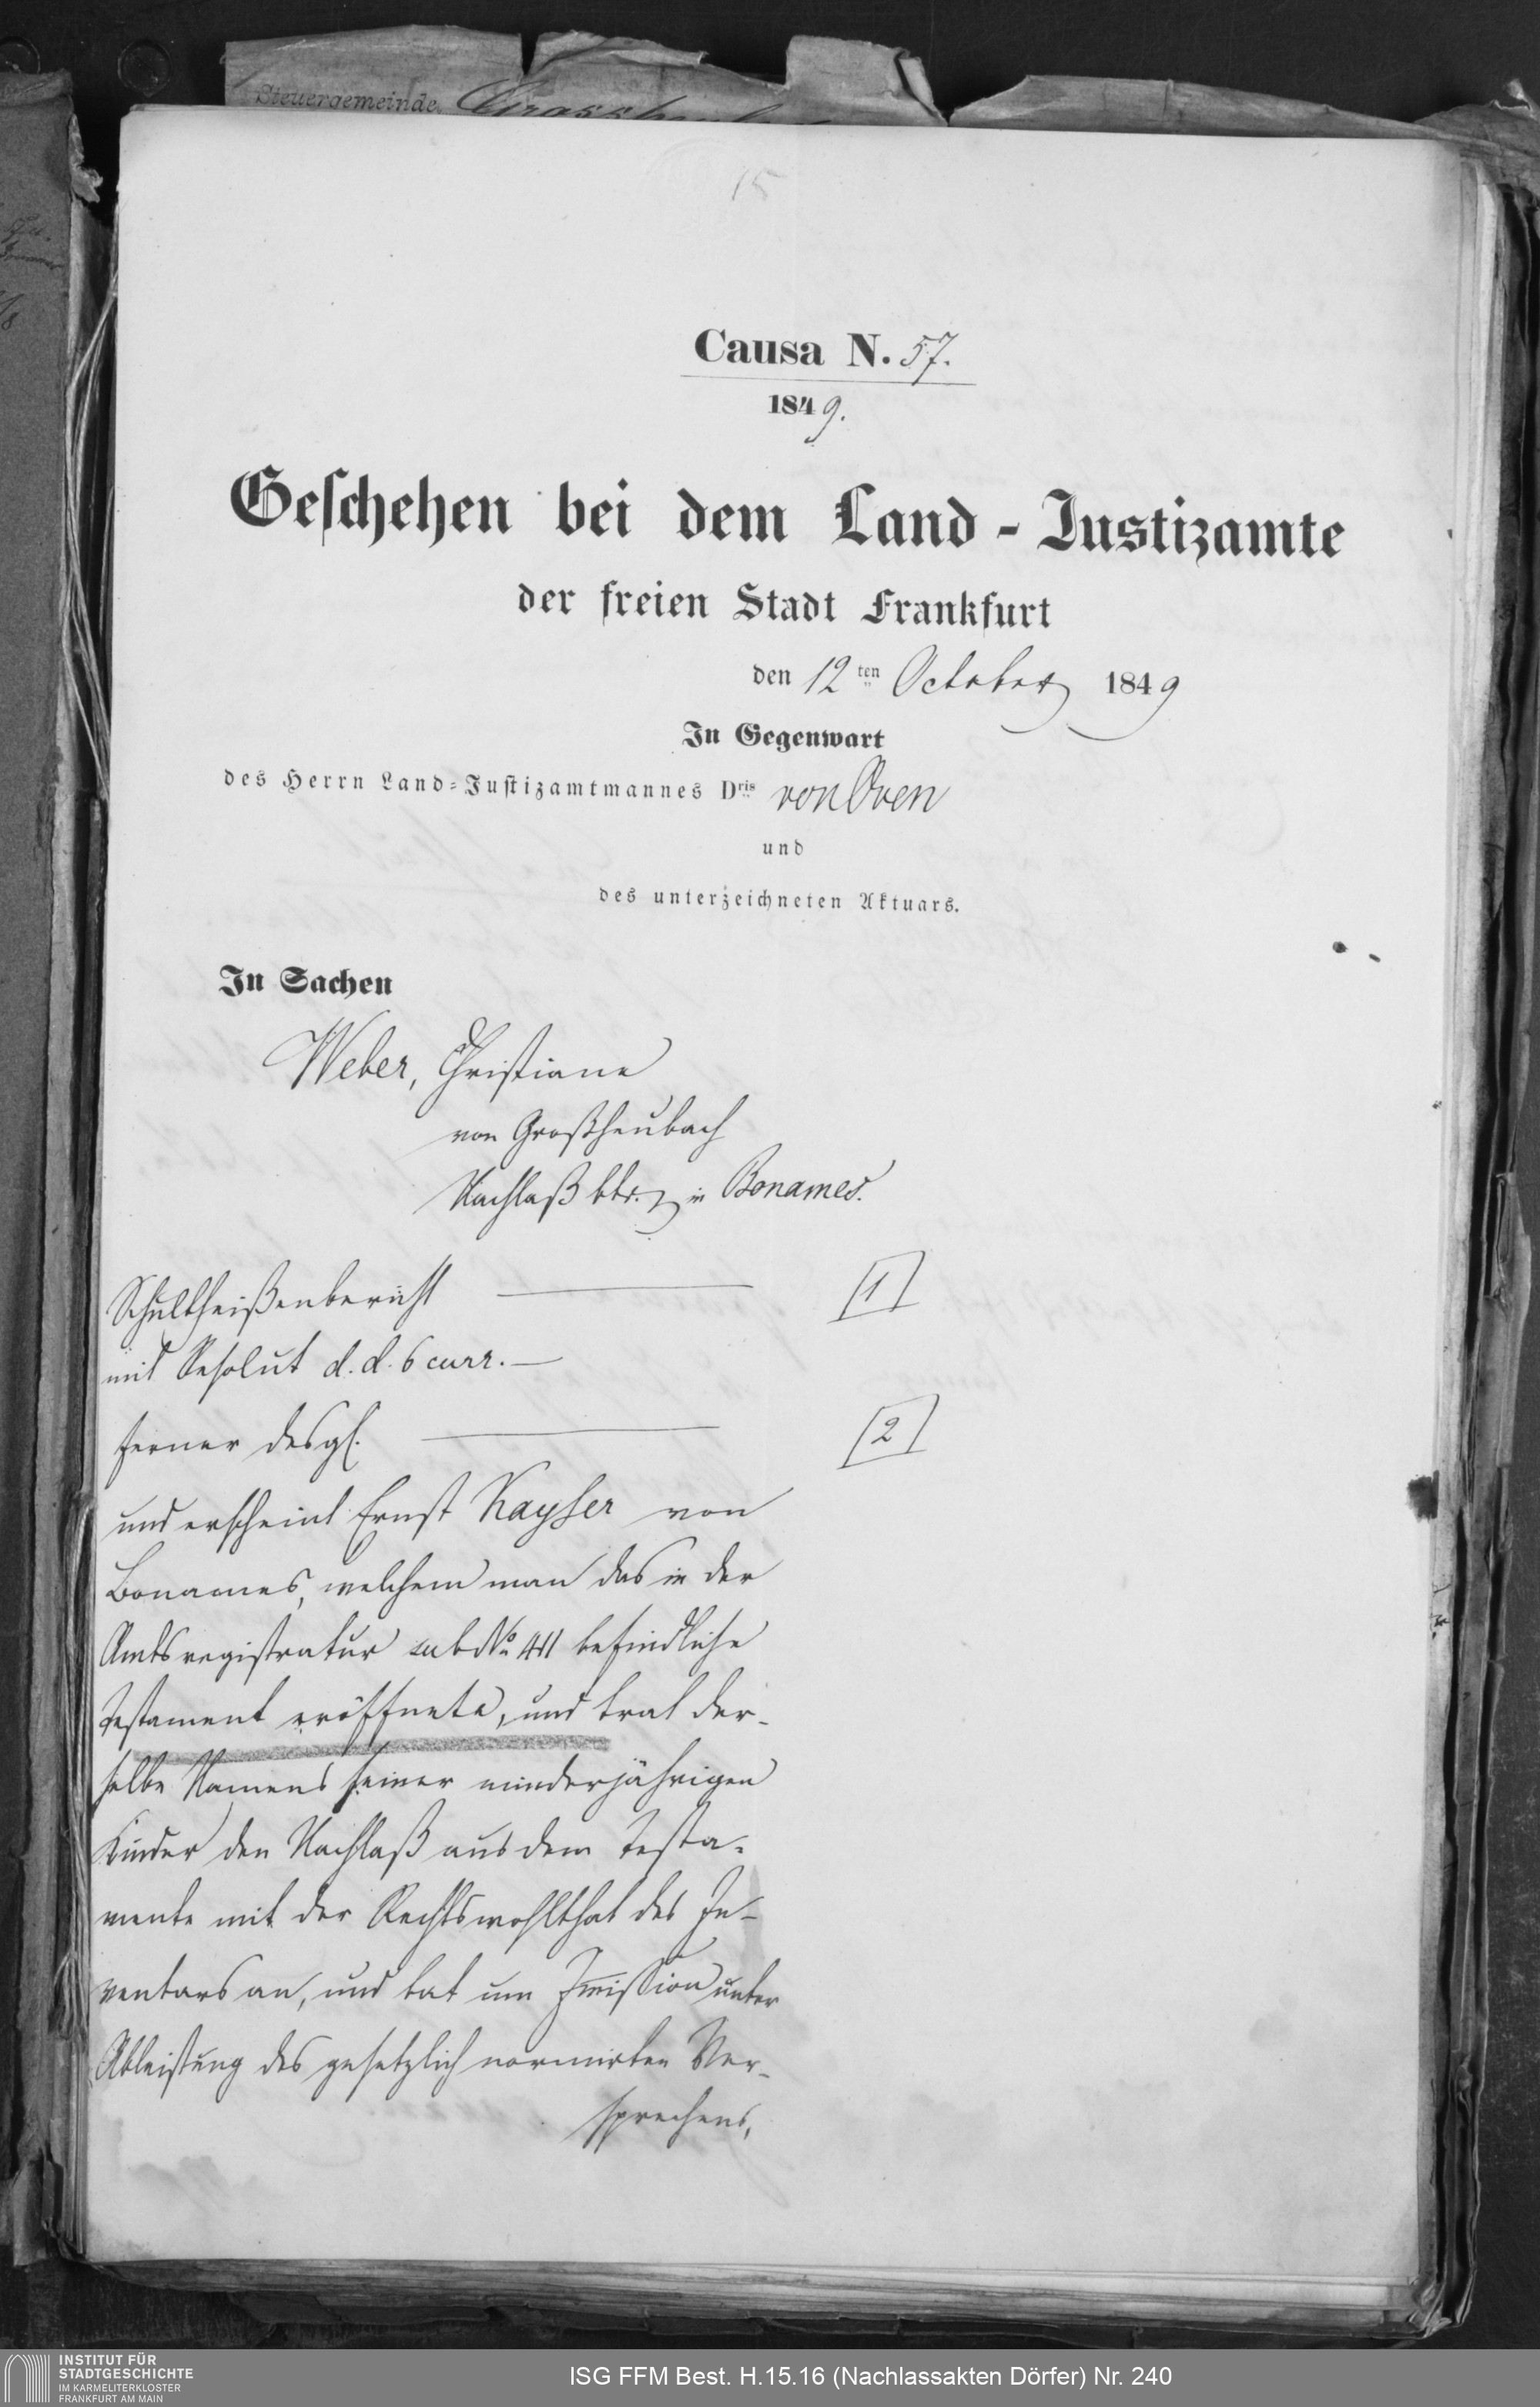 Steuergemeinde Grossheubach
15
Causa N. 57.
1849.
Geschehen bei dem Land-Justizamte
der freien Stadt Frankfurt
den 12ten October 1849
In Gegenwart
des Herrn Land-Justizamtmannes Dris von Oven
und
des unterzeichneten Aktuars.
In Sachen
Weber, Christiane
von Großheubach
Nachlaß btr. in Bonames.
Schultheißenbericht [1]
mit Resolut d. d. 6 curr. —
ferner desgl. [2]
und erscheint Ernst Kayser von
Bonames, welchem man das in der
Amtsregistratur sub No 411 befindliche
Testament eröffnete, und trat der-
selbe Namens seiner minderjährigen
Kinder den Nachlaß aus dem Testa-
mente mit der Rechtswohlthat des In-
ventars an, und bat um Immission unter
Ableistung des gesetzlich normirten Ver-
sprechens,
INSTITUT FÜR
STADTGESCHICHTE
IM KARMELITERKLOSTER
FRANKFURT AM MAIN
ISG FFM Best. H.15.16 (Nachlassakten Dörfer) Nr. 240